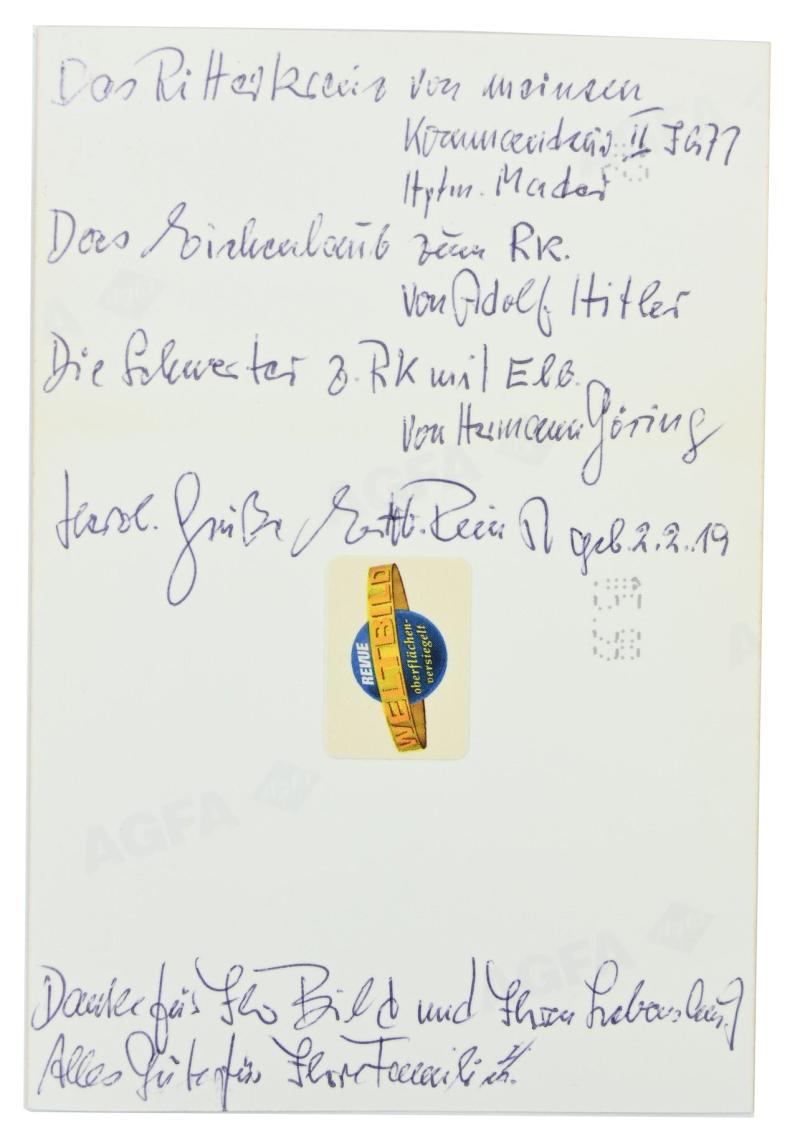 Das Ritterkreuz von meinem
Kommandeur II JG 77
Hptm. Mader
Das Eichenlaub zum RK.
von Adolf Hitler
Die Schwerter z. RK mit Elb.
von Hermann Göring
herzl. Grüße Ernst-W. Reinert geb. 2.2.19
REVUE
WELTBILD
oberflächen-
versiegelt
AGFA
AGFA
AGFA
Danke für Ihr Bild und Ihren Lebenslauf
Alles Gute für Ihre Familie.